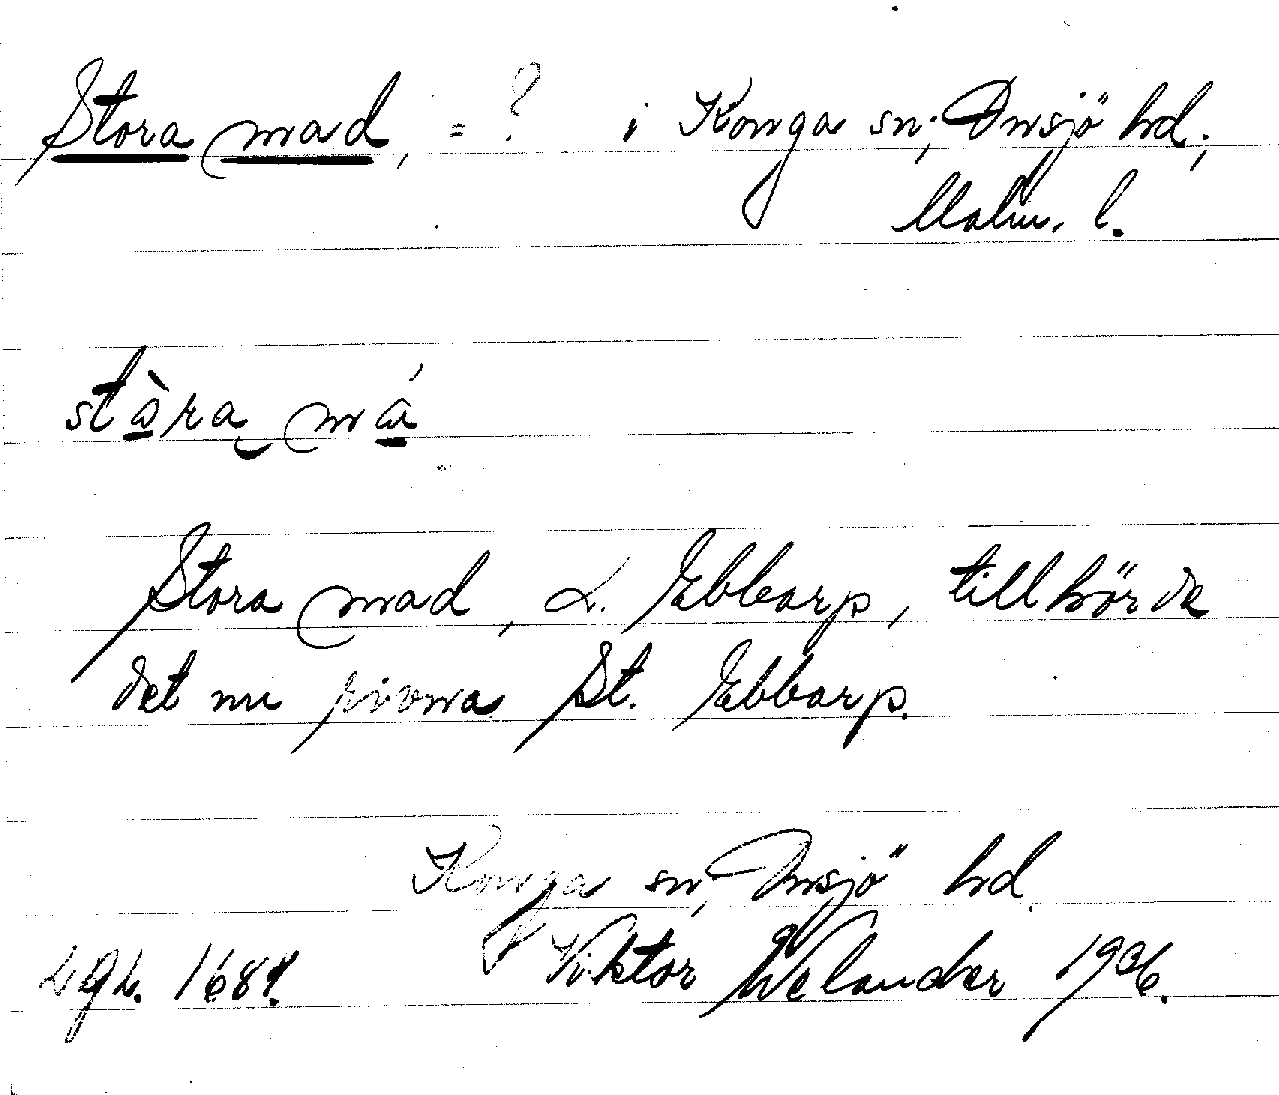 Stora mad, = ? i Konga sn; Onsjö hd.,
Malm. l.
stòra má
Stora mad, L. Ebbarp, tillhörde
det nu rivna St. Ebbarp.
Konga sn, Onsjö hd.
Lgh. 1681. Viktor Welander 1936.